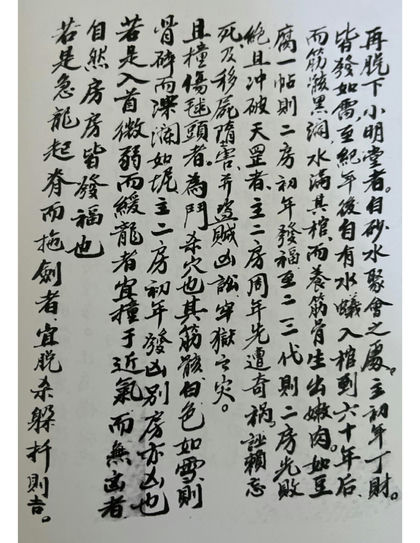 再脫下小明堂者。自砂水聚會之處。主初年丁財。
皆發如雷至紀年後自有水蟻入棺到六十年后
而筋骸黑潤水滿其棺而養筋骨生出嫩肉。如豆
腐一帖則二房初年發福至二三代則二房先敗
絕且冲破天罡者主二房周年先遭奇禍。誣賴忘
死及移屍隋害并盜賊凶訟牢獄之灾。
且撞傷毬頭者為鬥殺穴也其筋骸白色如雪則
骨碎而深瀾如坭主二房初年發凶别房亦凶也
若是入首微弱而緩龍者宜撞于近氣而無凶者
自然房房皆發福也
若是急龍起脊而拖劍者宜脫杀躲折則吉。